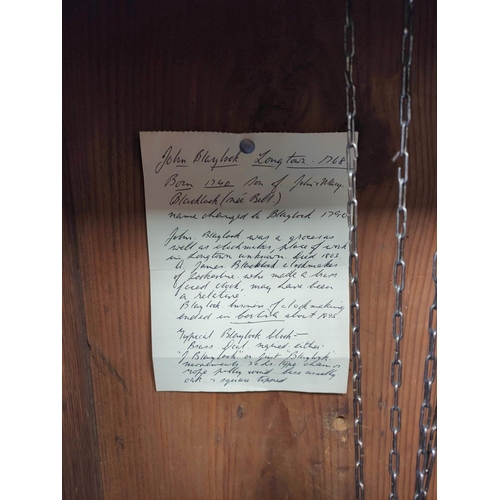 John Blaylock Longtown. 1768
Born 1740 son of John & Mary
Blacklock (née Bell)
name changed to Blaylock 1790
John Blaylock was a grocer as
well as clockmaker, place of work
in Longtown unknown. Died 1803
A James Blacklock clockmaker
of Lockerbie who made a brass
faced clock, may have been
a relative
Blaylock business of clockmaking
ended in Carlisle about
Typical Blaylock clock -
Brass Dial signed either
"J Blaylock" or just "Blaylock"
movements type chain or
rope pulley wound. Case usually
oak. square topped